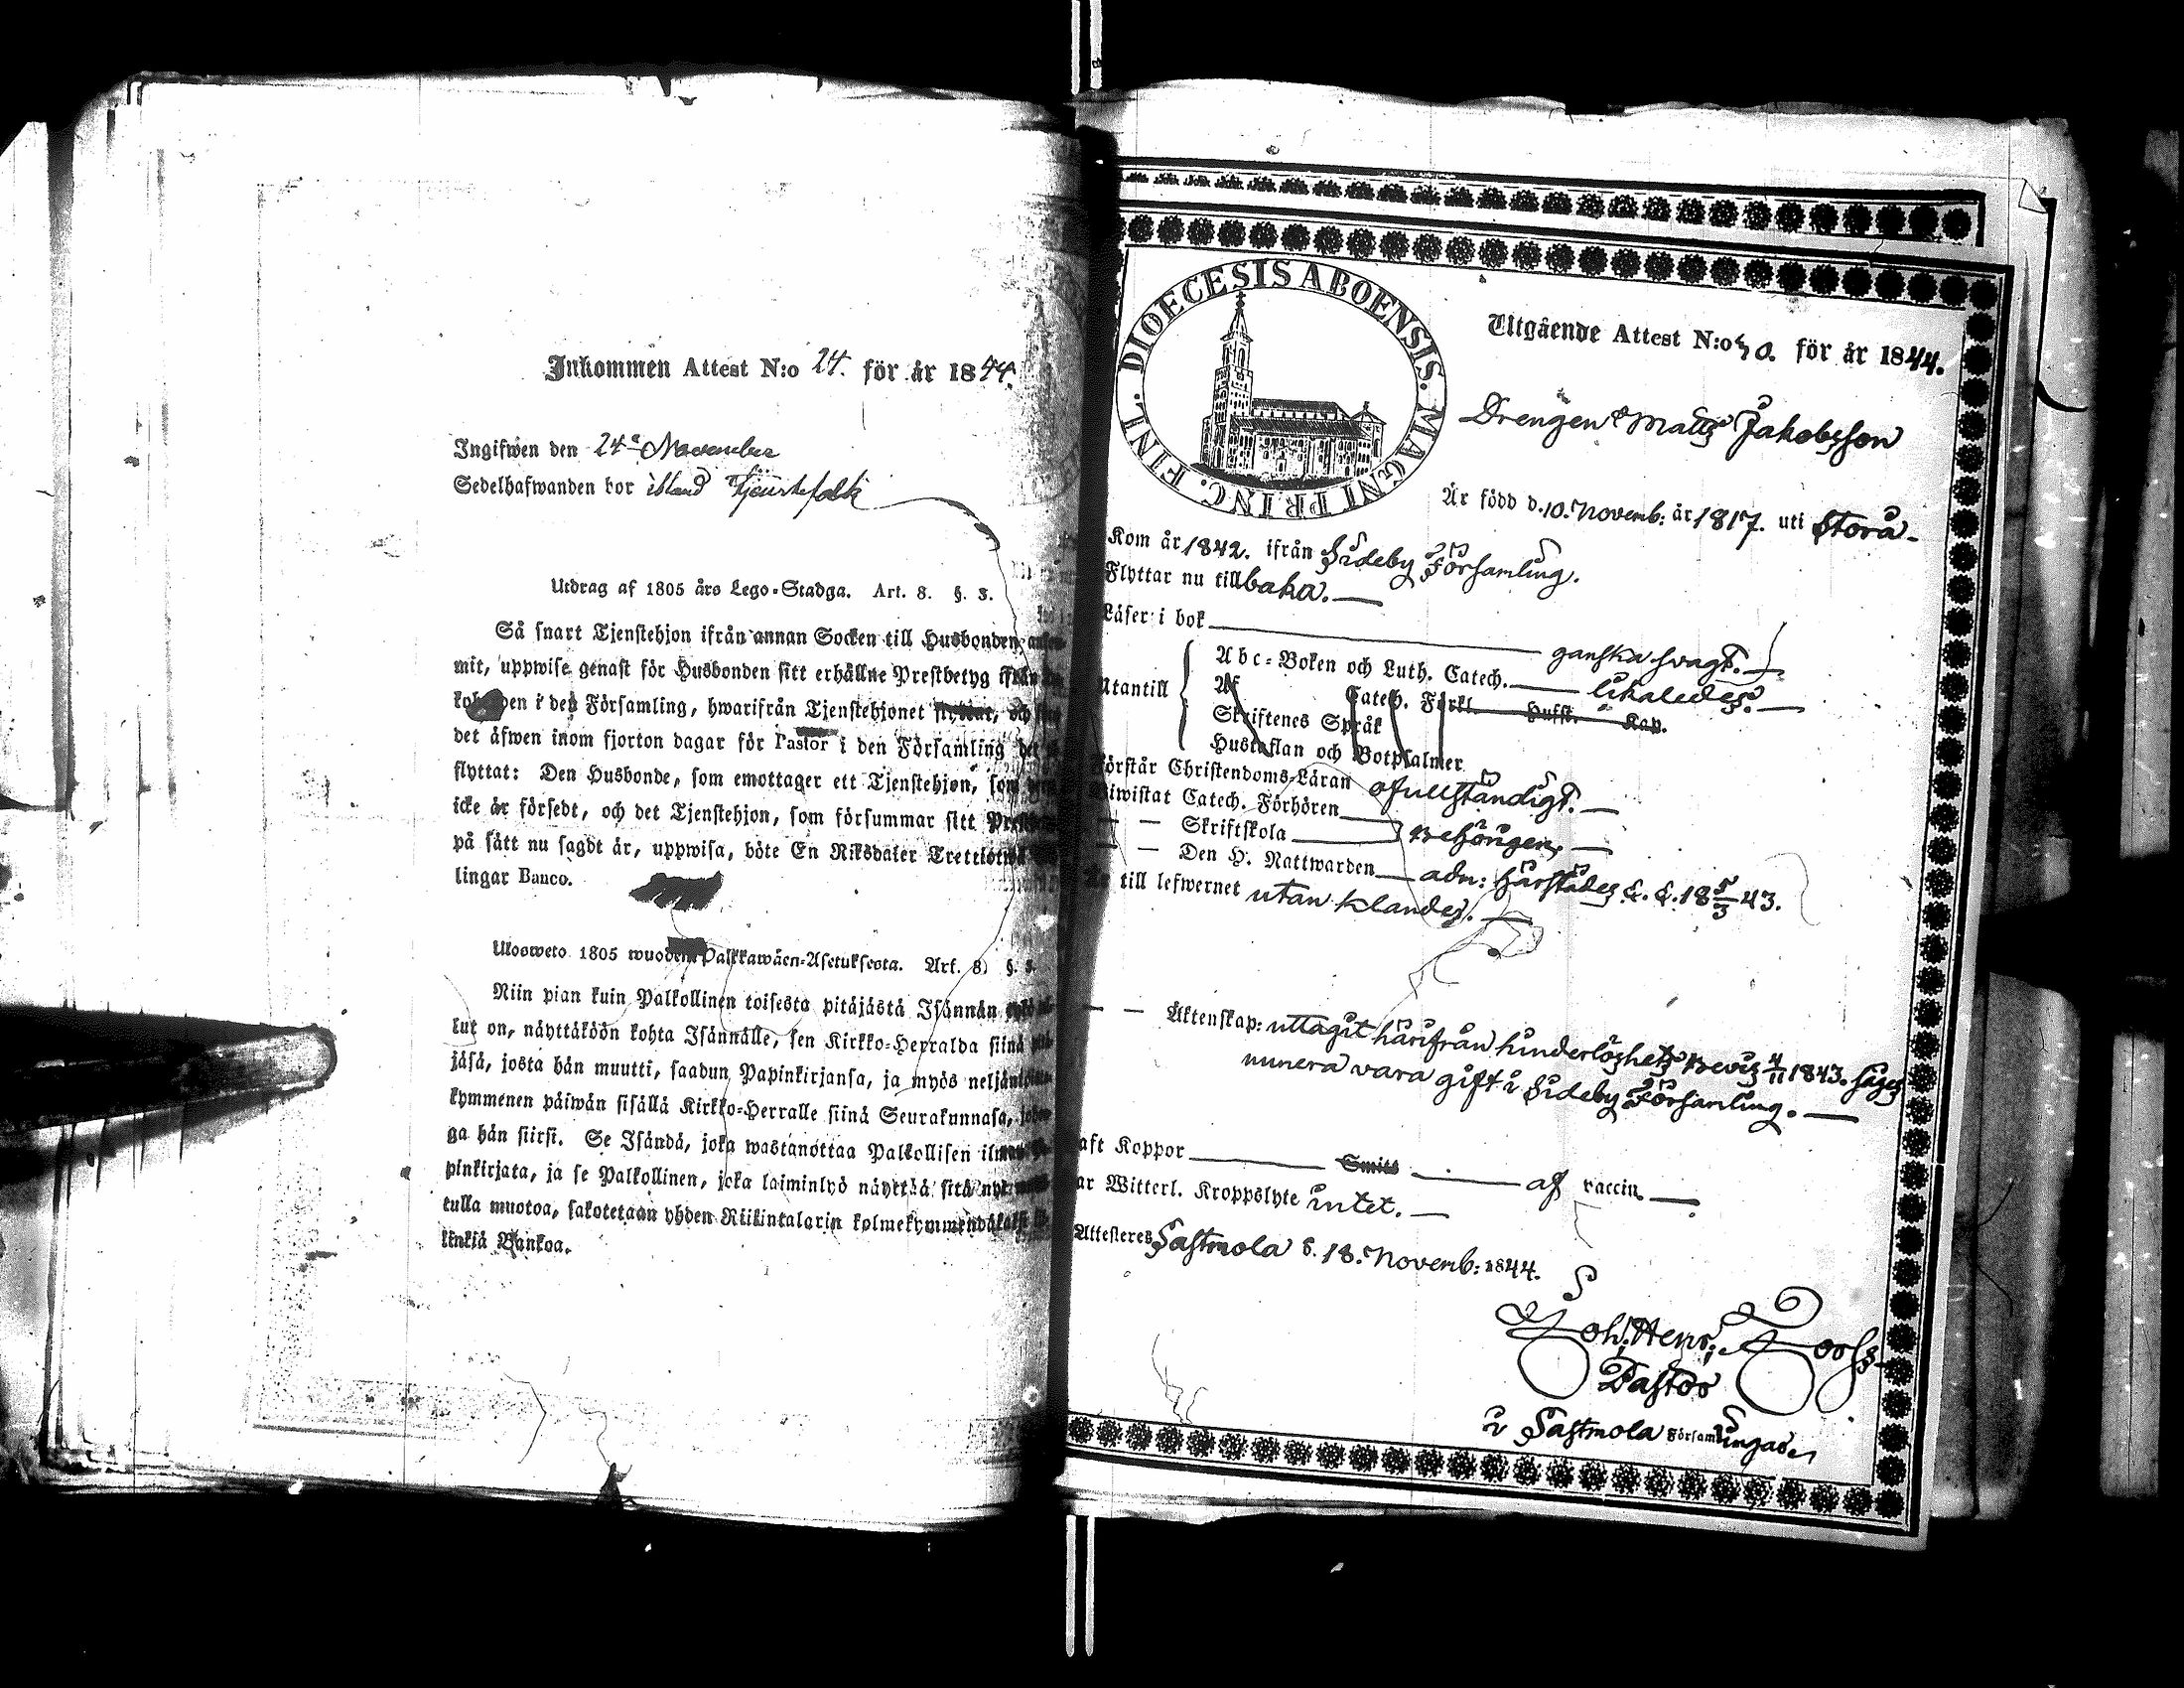 Inkommen Attest N:o 24. för år 1844.
Ingifwen den 24de November
Sedelhafwanden bor ibland Tjenstefolk
Utdrag af 1805 års Lego-Stadga. Art. 8. §. 3.
Så snart Tjenstehjon ifrån annan Socken till Husbonden
mit, uppwise genast för Husbonden sitt erhållne Prestbetyg ifrån
i den Församling, hwarifrån Tjenstehjonet flyttar, och
det äfwen inom fjorton dagar för Pastor i den Församling det
flyttat: Den Husbonde, som emottager ett Tjenstehjon, som
icke är försedt, och det Tjenstehjon, som försummar sitt
på sätt nu sagdt är, uppwisa, böte En Riksdaler Trettiotwå
lingar Banco.
Ulosweto 1805 wuoden Palkkawäen-Asetuksesta. Art. 8. §. 3.
Niin pian kuin Palkollinen toisesta pitäjästä Isännän
lut on, näyttäköön kohta Isännälle, sen Kirkko-Herralda siinä
jäsä, josta hän muutti, saadun Papinkirjansa, ja myös neljän
kymmenen päiwän sisällä Kirkko-Herralle siinä Seurakunnasa,
ga hän siirsi. Se Isändä, joka wastanottaa Palkollisen
pinkirjata, ja se Palkollinen, joka laiminlyö näyttää sitä
tulla muotoa, sakotetaan yhden Riikintalarin
linkiä Bankoa.
DIOECESIS ABOENSIS. MAGNI PRINC. FINL.
Utgående Attest N:o 30. för år 1844.
Drengen Matts Jakobsson
Är född d. 10. Novemb: år 1817. uti Storå.
Kom år 1842. ifrån Sideby Församling.
Flyttar nu tillbaka.
Läser i bok ganska svagt.
Utantill
Abc-Boken och Luth. Catech. likaledes.
Af Catech. Förkl. Hufst. Kap.
Skriftenes Språk
Hustaflan och Botpsalmer
Förstår Christendoms-Läran ofullständigt.
Biwistat Catech. Förhören
— — Skriftskola behörigen.
— — Den H. Nattwarden adm: härstädes &. &. 18 5/3 43.
Är till lefwernet utan klander.
— — Äktenskap: uttagit härifrån hinderlöshets bevis 4/11 1843. säges
numera vara gift i Sideby Församling.
aft Koppor Smitt af vaccin.
ar Witterl. Kroppslyte intet.
Attesteres Sastmola d. 18. Novemb: 1844.
Joh: Henr:
Pastor
i Sastmola Församlingar